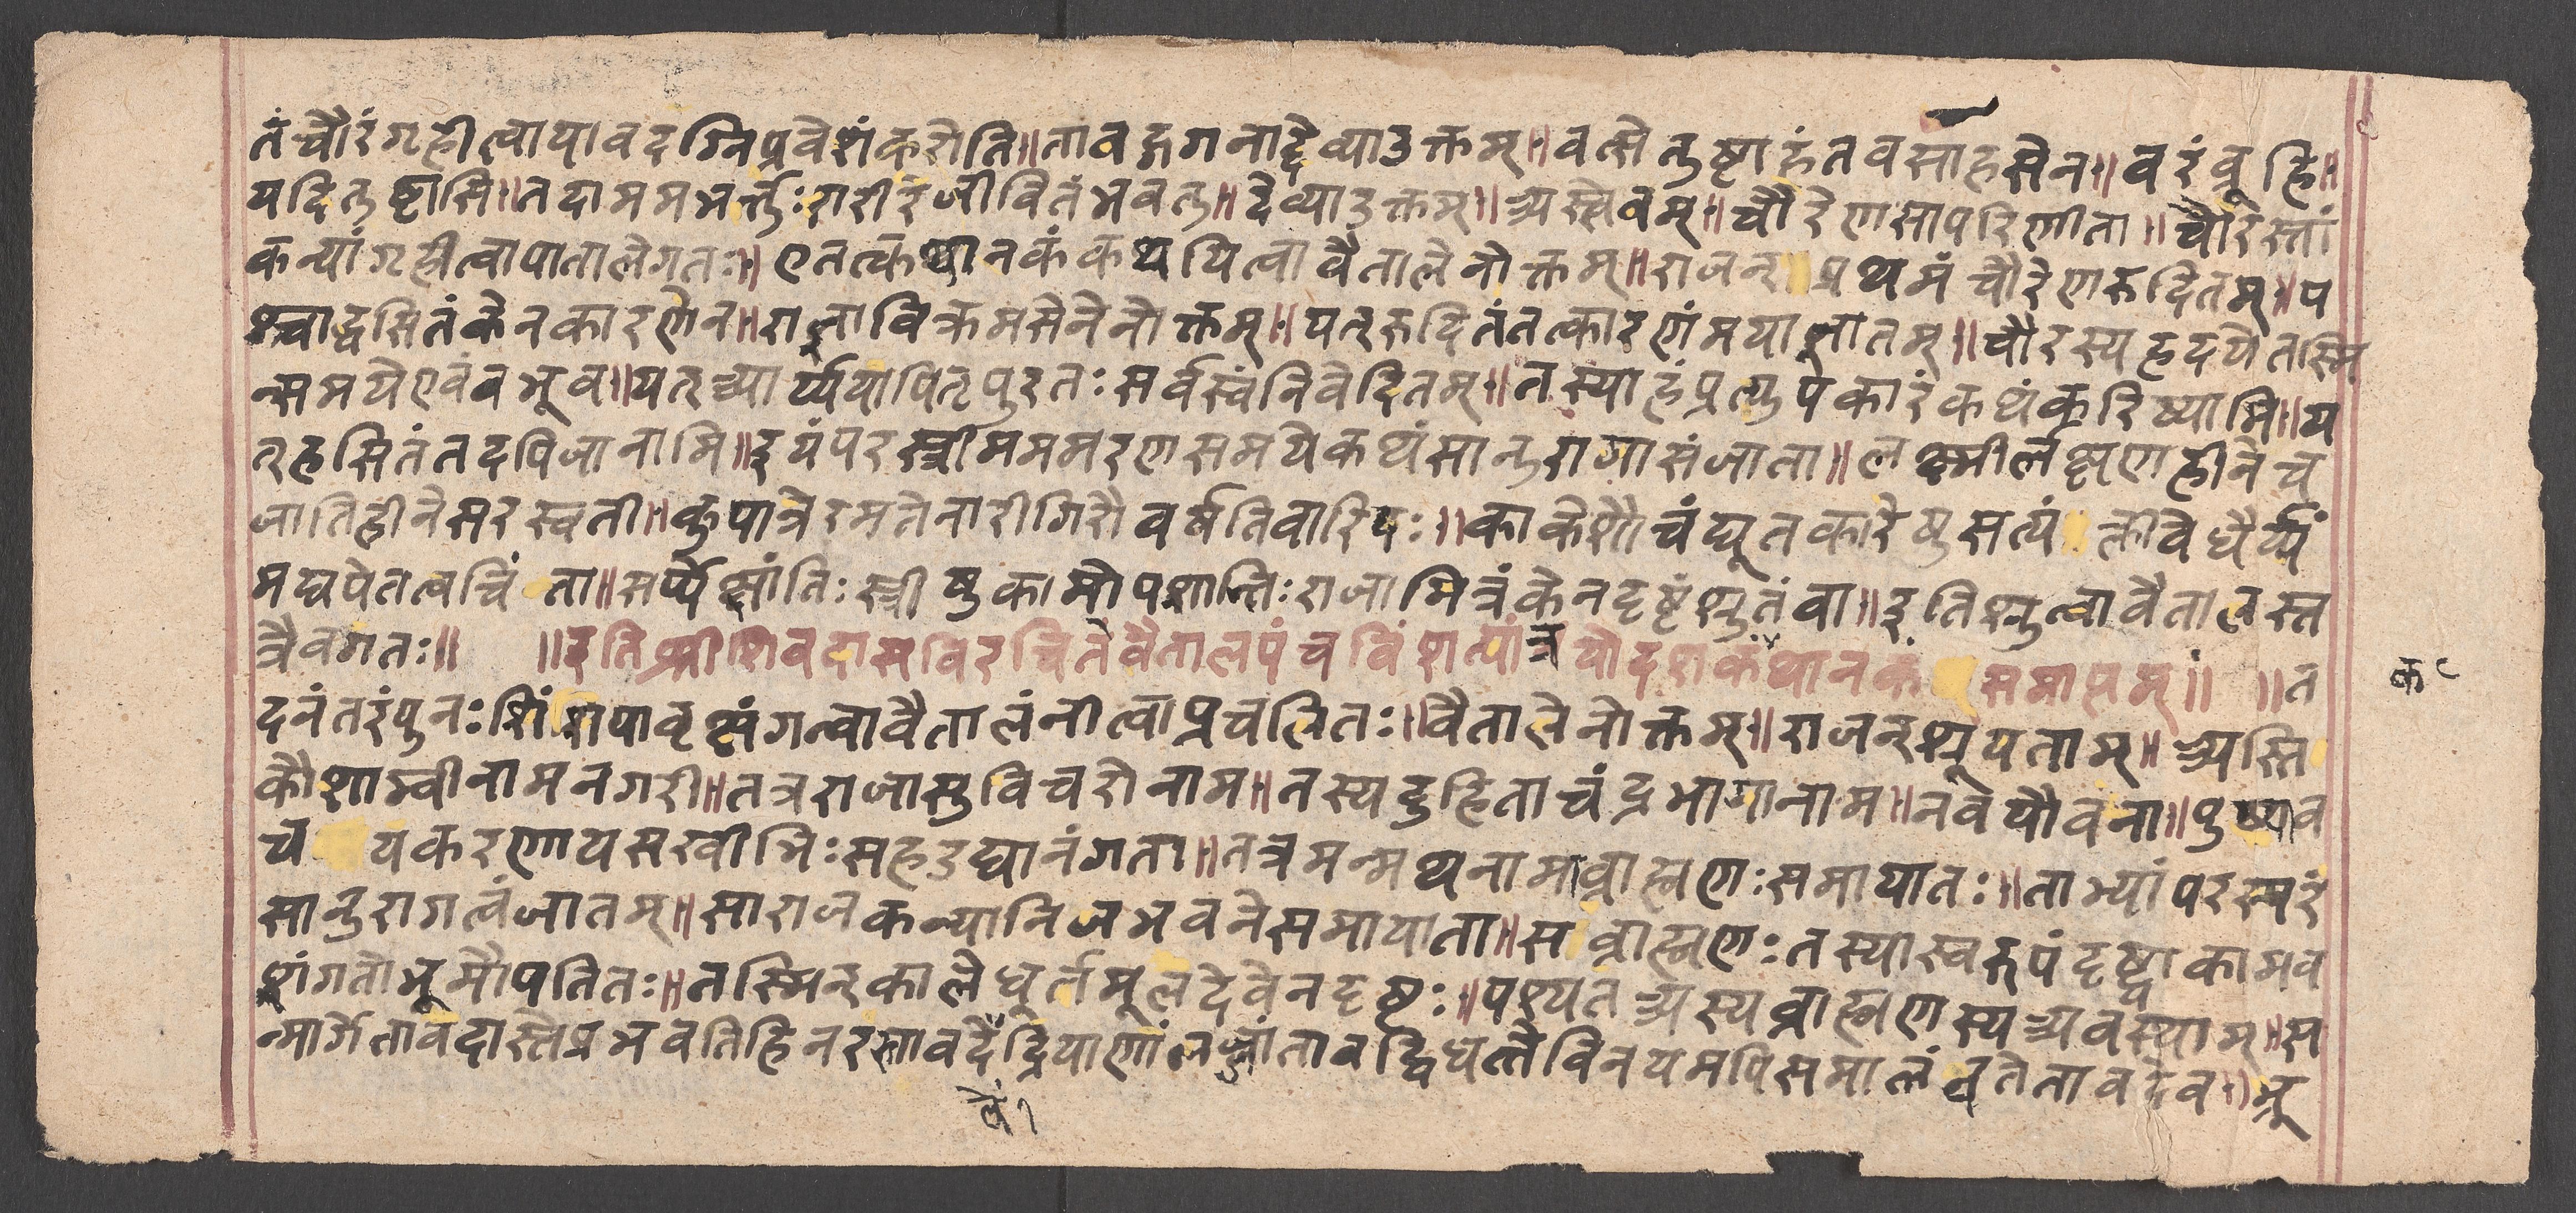 तंचौरंगृहीत्वायावदग्निप्रवेशंकरोति॥तावद्गगनाद्देव्याउक्तम्॥वत्सेतुष्टाहंतवसाहसेन॥वरंव्रूहि॥
यदितुष्टासि॥तदाममभर्त्तुःशरीरंजीवितंभवतु॥देव्याउक्तम्॥अस्त्वेवम्॥चौरेणसापरिणीता॥चौरस्तां
कन्यांगृहीत्वापातालेगतः॥एतत्कथानकंकथयित्वावैतालेनोक्तम्॥राजन्प्रथमंचौरेणरुदितम्॥प
श्चाद्धसितंकेनकारणेन॥राज्ञाविक्रमसेनेनोक्तम्॥यत्रुदितंतत्कारणंमयाज्ञातम्॥चौरस्यहृदयेतस्मि
न्समयेएवंवभूव॥यत्भार्य्ययापितृपुरतःसर्वस्वंनिवेदितम्॥तस्याहंप्रत्युपकारंकथंकरिष्यामि॥य
त्हसितंतदपिजानामि॥इयंपरस्त्रीमममरणसमयेकथंसानुरागासंजाता॥लक्ष्मीर्लक्षणहीनेच
जातिहीनेसरस्वती॥कुपात्रेरमतेनारीगिरौवर्षतिवारिदः॥काकेशौचंद्यूतकारेषुसत्यंक्लीवेधैर्य्यं
मद्यपेतत्वचिंता॥सर्प्पेक्षांतिःस्त्रीषुकामोपशान्तिःराजामित्रंकेनदृष्टंश्रुतंवा॥इतिश्रुत्वावैतालस्त
त्रैवगतः॥ ॥इतिश्रीशिवदासविरचितेवैतालपंचविंशत्यांत्रयोदशकंथानकंसमाप्तम्॥ ॥त
क
दनंतरंपुनःशिंशपावृक्षंगत्वावैतालंनीत्वाप्रचलितः॥वैतालेनोक्तम्॥राजन्श्रूयताम्॥अस्ति
कौशाम्वीनामनगरी॥तत्रराजासुविचरोनाम॥तस्यदुहिताचंद्रभागानाम॥नवयौवना॥पुष्पाव
चयकरणायसखीभिःसहउद्यानंगता॥तत्रमन्मथनामाव्राह्मणःसमायातः॥ताभ्यांपरस्परं
सानुरागत्वंजातम्॥साराजकन्यानिजभवनेसमायाता॥सव्राह्मणःतस्यास्वरूपंदृष्ट्वाकामव
शंगतोभूमौपतितः॥तस्मिन्कालेधूर्तमूलदेवेनदृष्टः॥पश्यतअस्यव्राह्मणस्यअवस्थाम्॥स
न्मार्गेतावदास्तेप्रभवतिहिनरस्तावदेंद्रियाणांलज्जांतावद्विधत्तेविनयमपिसमालंवतेतावदेव॥भ्रू